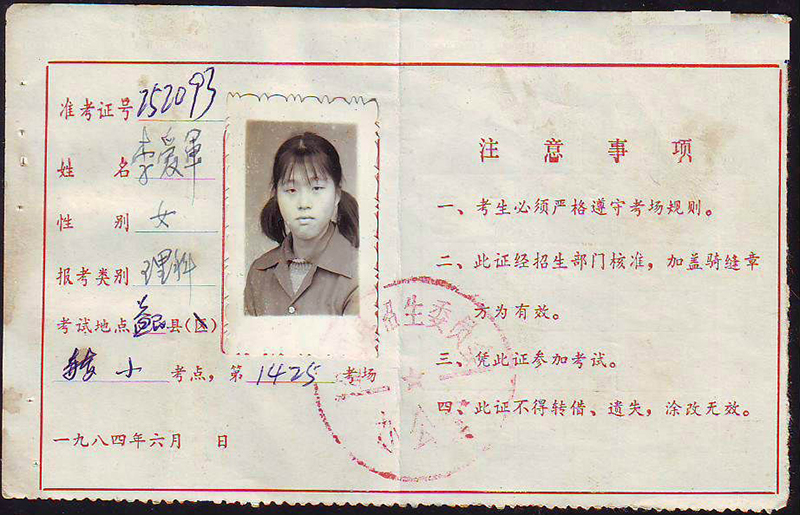 准考证号 252093
姓 名 李爱军
性 别 女
报考类别 理科
考试地点 县(区)
小 考点，第 1425 考场
一九八四年六月 日
注意事项
一、考生必须严格遵守考场规则。
二、此证经招生部门核准，加盖骑缝章
方为有效。
三、凭此证参加考试。
四、此证不得转借、遗失，涂改无效。
招生委员
办公